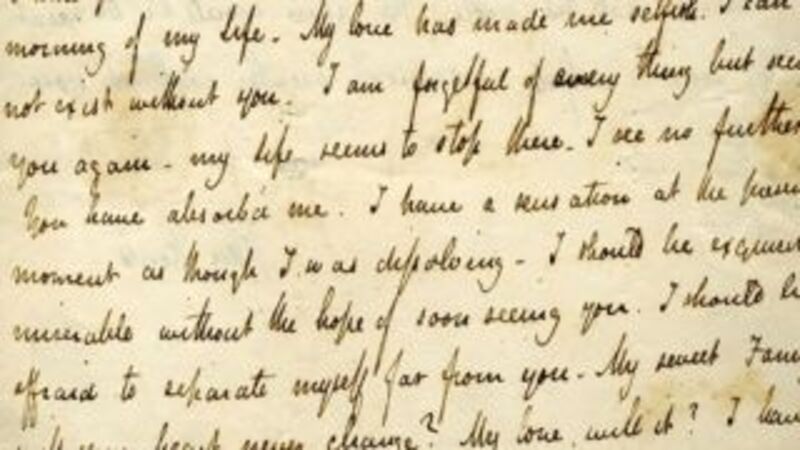 morning of my life - My love has made me selfish. I can
not exist without you - I am forgetful of every thing but seeing
you again - my Life seems to stop there - I see no further
You have absorb'd me. I have a sensation at the present
moment as though I was dissolving - I should be exquisi
miserable without the hope of soon seeing you. I should be
affraid to separate myself far from you - My sweet Fann
will your heart never change? My love will it? I have